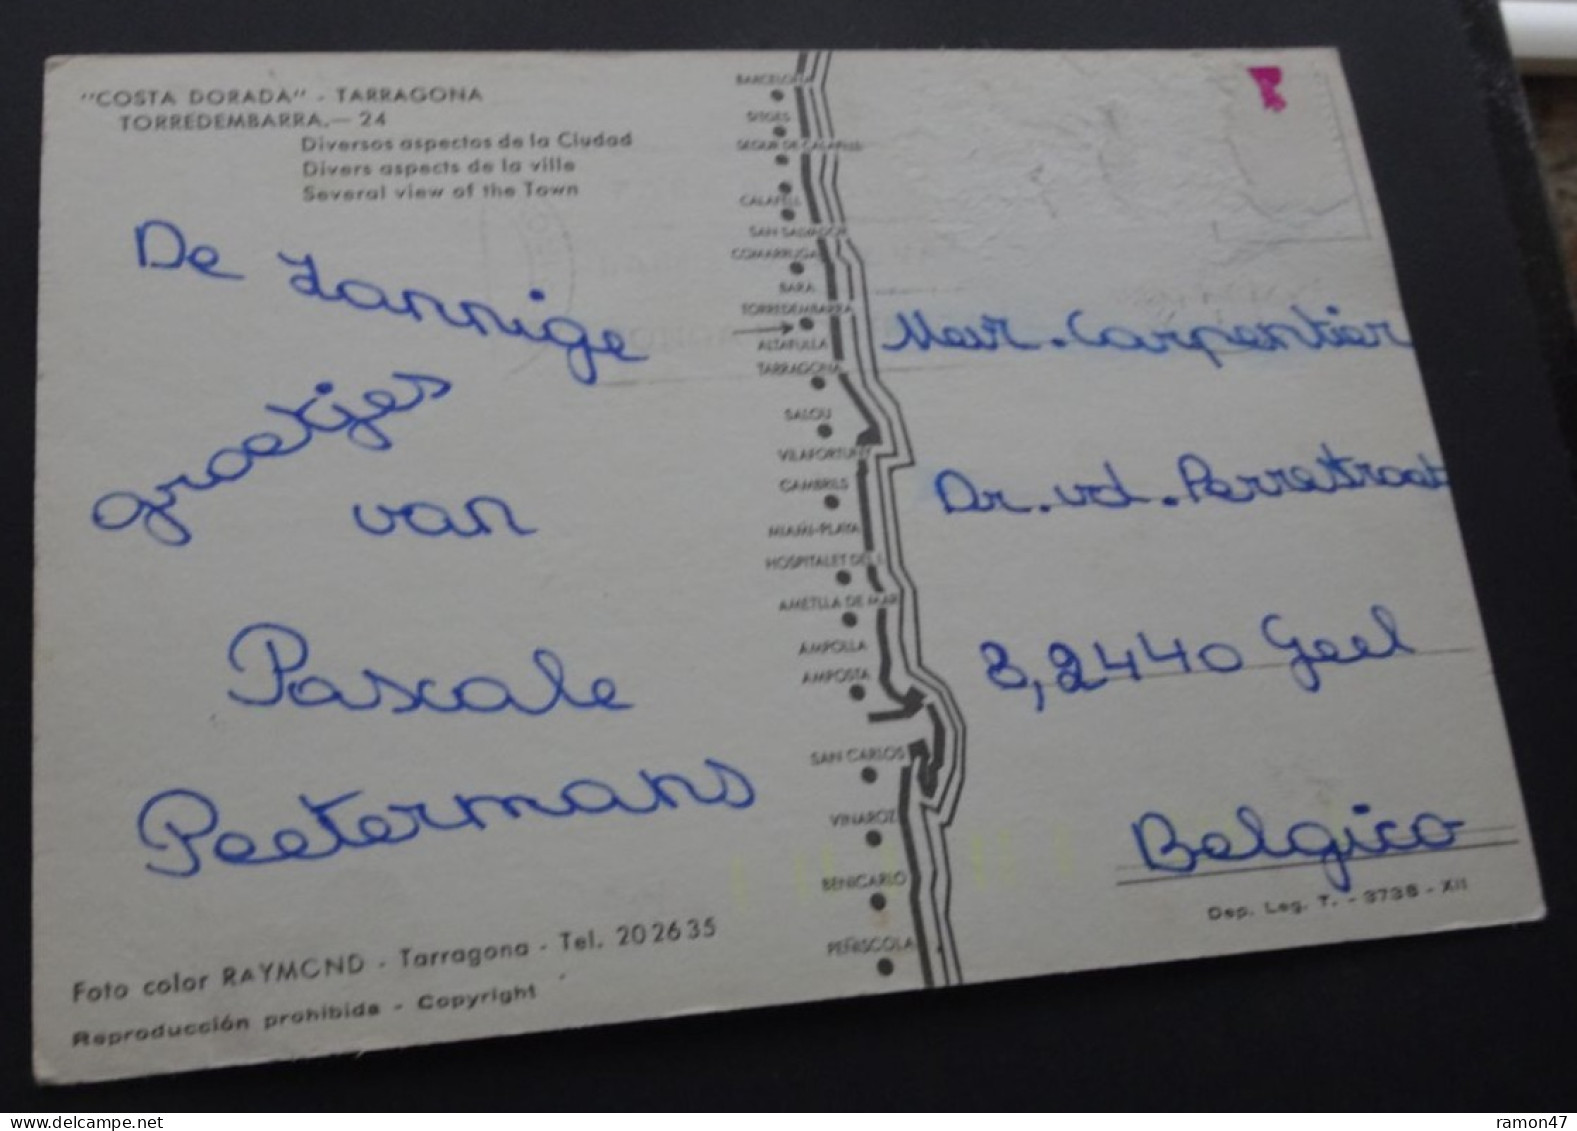 "COSTA DORADA" - TARRAGONA
TORREDEMBARRA.— 24
Diversos aspectos de la Ciudad
Divers aspects de la ville
Several view of the Town
De zannige
groetjes
van
Pascale
Peetermans
Foto color RAYMOND - Tarragona - Tel. 202635
Reproducción prohibida - Copyright
BARCELONA
SITGES
SEGUR DE CALAFELL
CALAFELL
SAN SALVADOR
COMARRUGA
BARA
TORREDEMBARRA
ALTAFULLA
TARRAGONA
SALOU
VILAFORTUNY
CAMBRILS
MIAMI-PLAYA
HOSPITALET DEL I.
AMETLLA DE MAR
AMPOLLA
AMPOSTA
SAN CARLOS
VINAROZ
BENICARLO
PEÑISCOLA
Carpentier
Dr. vd. Perrestraat
3, 2440 Geel
Belgico
Dep. Leg. T. - 3738 - XII
delcampe.net
ramon47